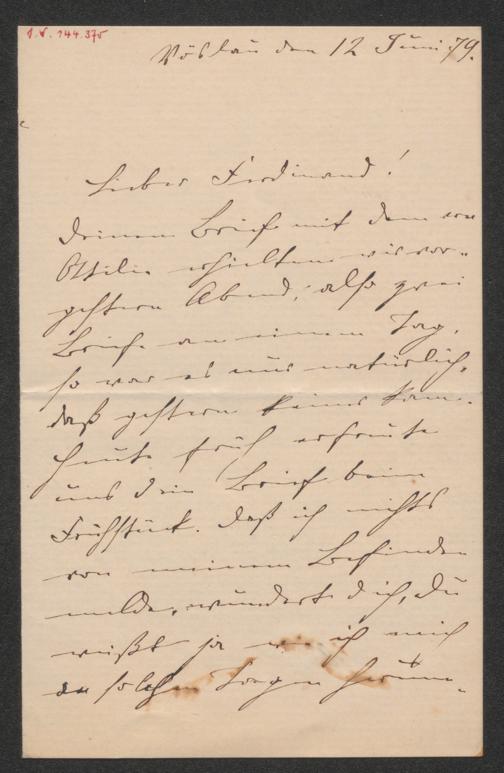 I.N. 144.375
Vöslau den 12 Juni 79.
Lieber Ferdinand!
deinen Brief mit dem von
Ottilie erhielten wir vor-
gestern Abend; also zwei
Briefe an einem Tag,
so war es nur natürlich,
daß gestern keiner kam.
Heute früh erfreute
uns dein Brief beim
Frühstück. daß ich nichts
von meinem Befinden
melde, wundert dich, du
weißt ja wie ich mich
an solchen Tagen